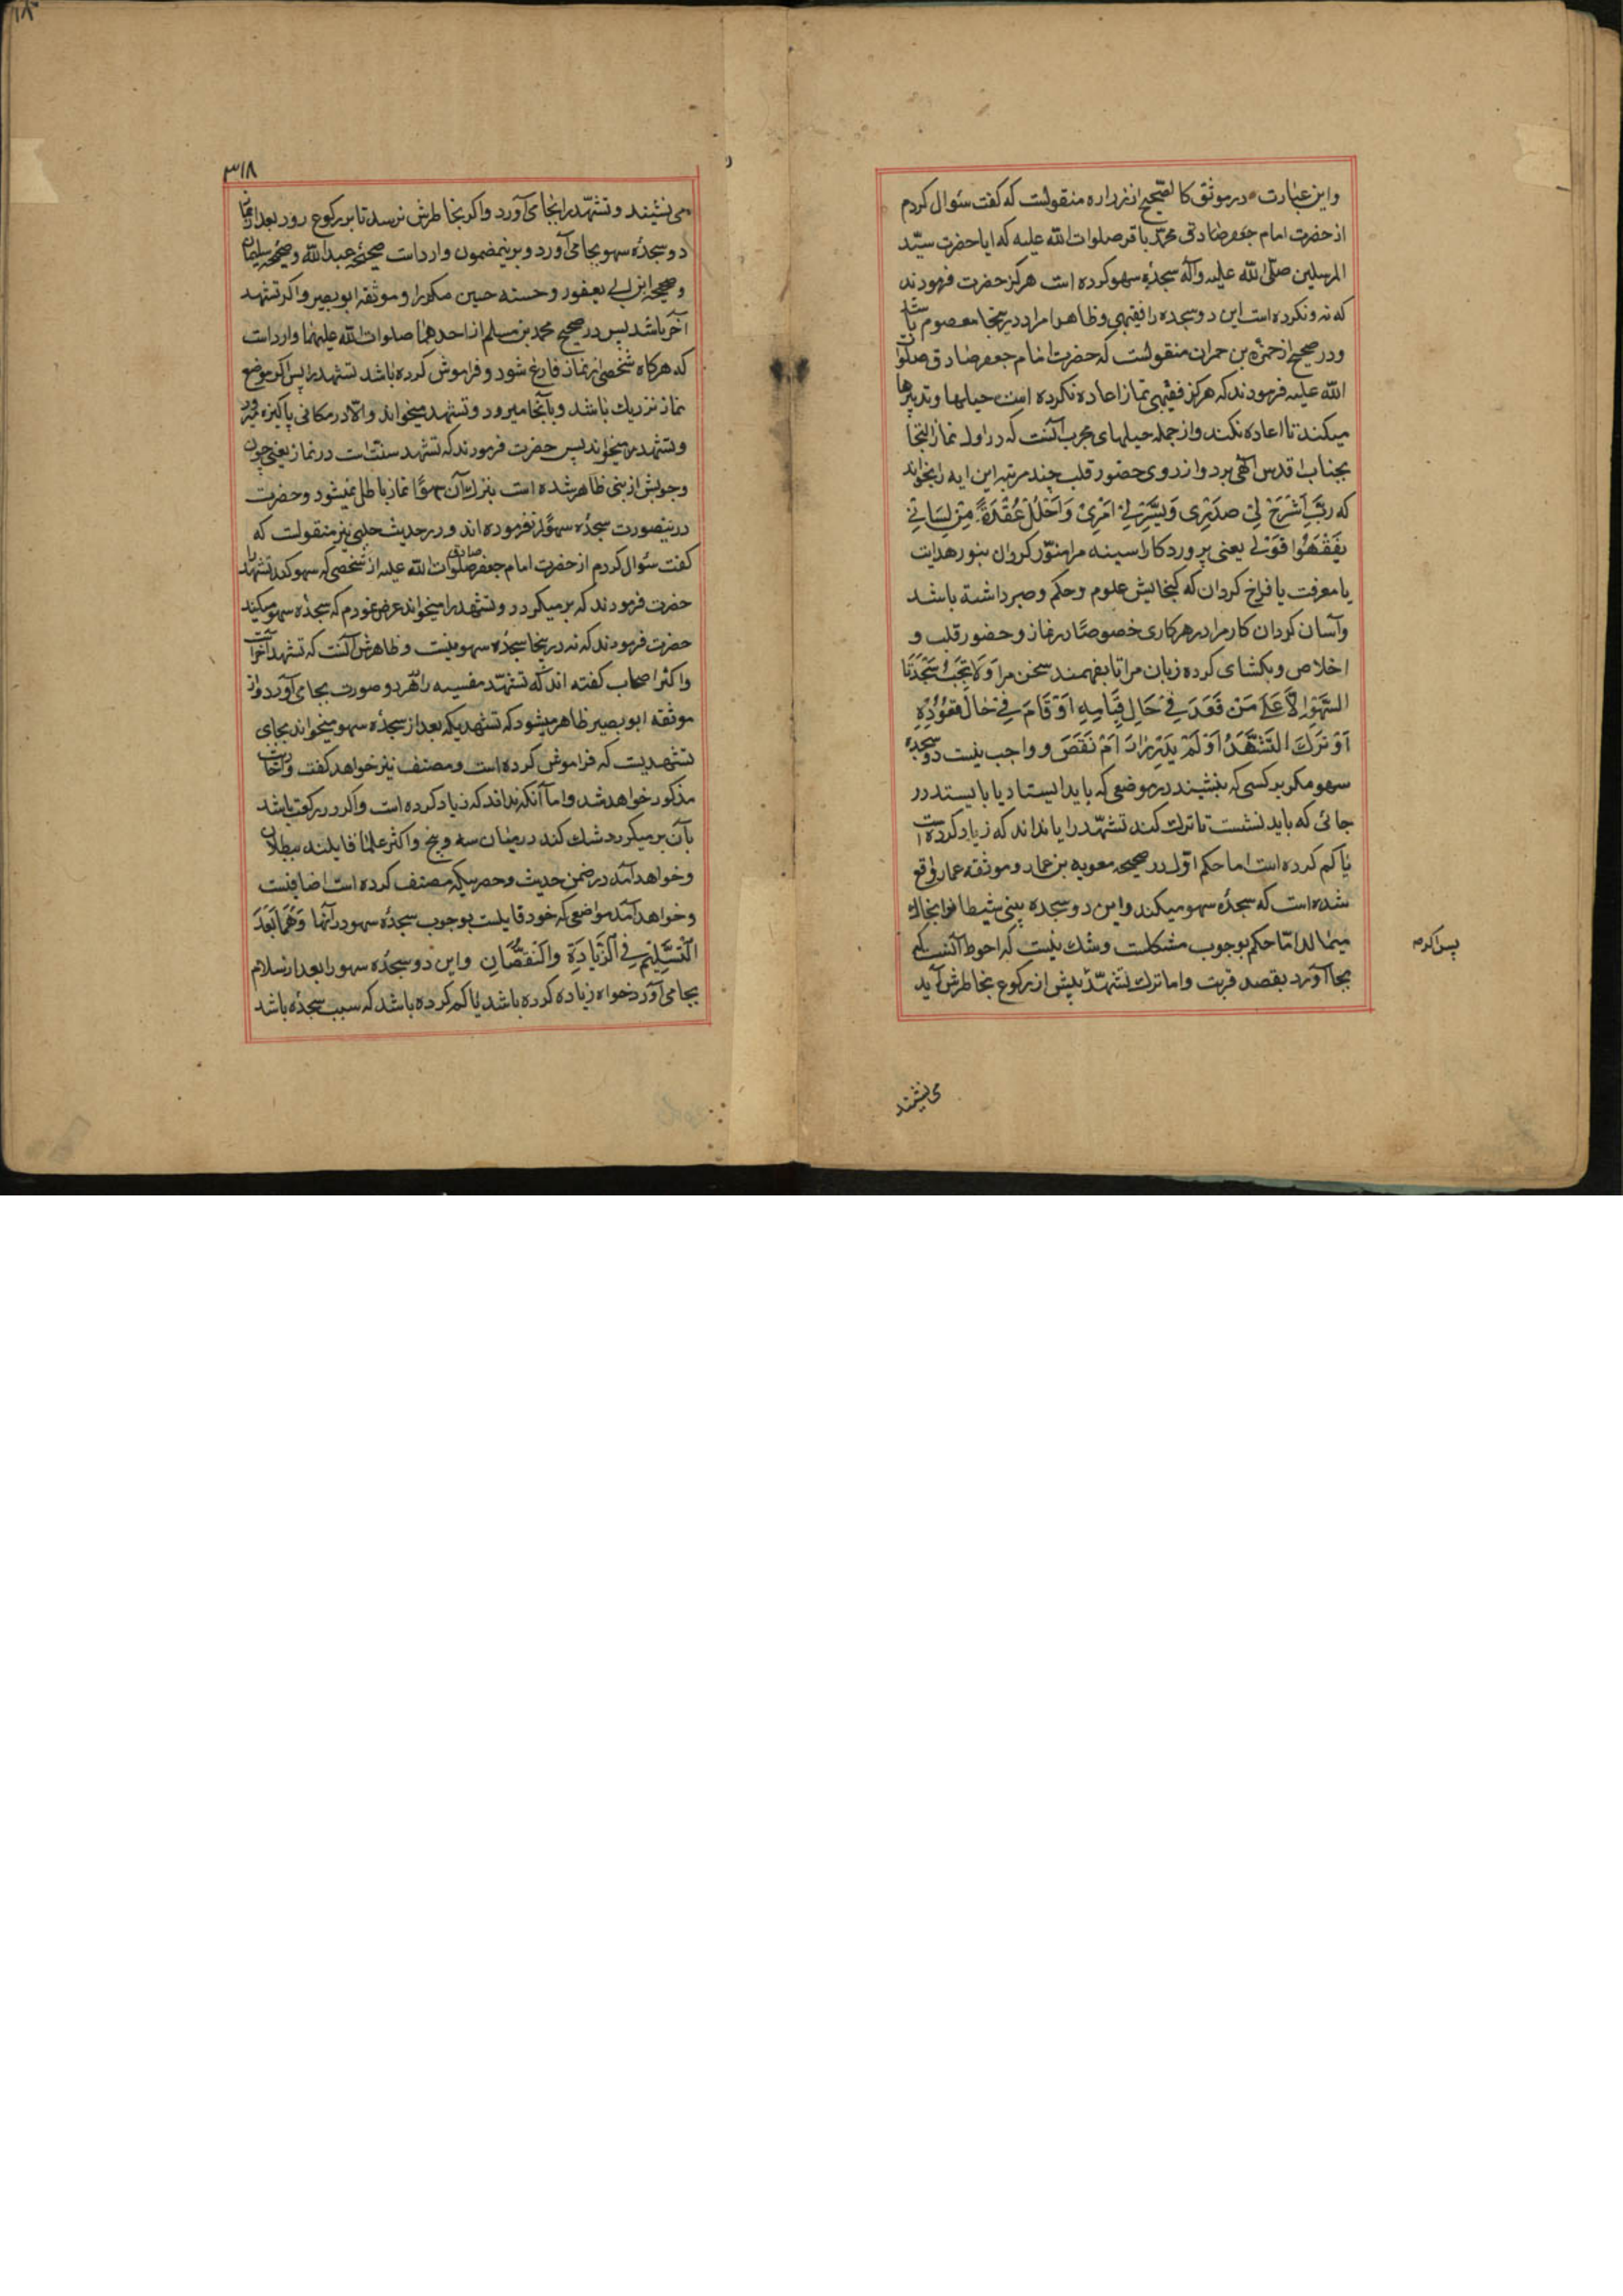 واین عبارت در موثق کالصحیح از زراره منقولست که گفت سئوال کردم
از حضرت امام جعفر صادق محمد باقر صلوات الله علیه که ایا حضرت سیّد
المرسلین صلّی الله علیه وآله سجدۀ سهو کرده است هرگز حضرت فرمودند
که نه ونکرده است این دو سجده را فقیهی وظاهرا مراد در اینجا معصوم باشد
ودر صحیح از حمزه بن حمران منقولست که حضرت امام جعفر صادق صلوات
الله علیه فرمودند که هرگز فقیهی نماز اعاده نکرده است حیلها وتدبیرها
میکند تا اعاده نکند واز جمله حیلهای مجرب آنست که در اول نماز التجا
بجناب اقدس الهی برد واز روی حضور قلب چند مرتبه این ایه را بخواند
که رَبِّ اشْرَحْ لِی صَدْرِی وَیَسِّرْ لِی اَمْرِی وَاحْلُلْ عُقْدَةً مِنْ لِسَانِی
یَفْقَهُوا قَوْلِی یعنی پروردکارا سینه مرا منوّر کردان بنور هدایت
یا معرفت یا فراخ کردان که کنجایش علوم وحکم وصبر داشته باشد
وآسان کردان کار مرا در هر کاری خصوصًا در نماز وحضور قلب و
اخلاص وبکشای کره زبان مرا تا بفهمند سخن مرا وَلَا تَجِبُ سَجْدَتَا
السَّهْوِ اِلَّا عَلَی مَنْ قَعَدَ فِی حَالِ قِیَامِهِ اَوْ قَامَ فِی حَالِ قُعُودِهِ
اَوْ تَرَکَ التَّشَهُّدَ اَوْ لَمْ یَدْرِ زَادَ اَمْ نَقَصَ و واجب نیست دو سجدۀ
سهو مکر بر کسی که بنشیند در موضعی که باید ایستاد یا بایستد در
جائی که باید نشست تا ترک کند تشهّد را یا نداند که زیاد کرده است
یا کم کرده است اما حکم اوّل در صحیحه معویه بن عمار وموثقه عمار واقع
شده است که سجدۀ سهو میکند واین دو سجده بینی شیطانرا بخاک
میمالد امّا حکم بوجوب مشکلست وشک نیست که احوط آنست که
پس اکر
بجا آورد بقصد قربت واما ترک تشهّد پیش از رکوع بخاطرش آید
می نشیند
۳۱۸
می نشیند وتشهّد را بجا می آورد واکر بخاطرش نرسد تا برکوع رود بعد از نماز
دو سجدۀ سهو بجا می آورد وبرینمضمون وارد است صحیحۀ عبدالله وصحیحه سلیمان
وصحیحه ابن ابی یعفور وحسنه حسین مکررا وموثقه ابو بصیر واکر تشهد
آخر باشد پس در صحیح محمد بن مسلم از احدهما صلوات الله علیهما وارد است
که هرکاه شخصی از نماز فارغ شود وفراموش کرده باشد تشهد را پس اکر موضع
نماز نزدیک باشد وبآنجا میرود وتشهد میخواند والّا در مکانی پاکیزه میرود
وتشهد را میخواند پس حضرت فرمودند که تشهد سنّت است در نماز یعنی چون
وجوبش از نبی ظاهر شده است بترک آن سهوًا نماز باطل نمیشود وحضرت
درینصورت سجدۀ سهو را نفرموده اند ودر حدیث حلبی نیز منقولست که
کفت سئوال کردم از حضرت امام جعفر صادق صلوات الله علیه از شخصی که سهو کند تشهد را
حضرت فرمودند که بر میکردد وتشهد را میخواند عرض نمودم که سجدۀ سهو میکند
حضرت فرمودند که نه در اینجا سجدۀ سهو نیست وظاهرش آنست که تشهد آخر است
واکثر اصحاب کفته اند که تشهّد منسیه را در هر دو صورت بجا می آورد واز
موثقه ابو بصیر ظاهر میشود که تشهدیکه بعد از سجدۀ سهو میخواند بجای
تشهدیست که فراموش کرده است ومصنف نیز خواهد کفت
مذکور خواهد شد واما آنکه نداند که زیاد کرده است واکر در رکعت باشد
بآن بر میکردد شک کند در میان سه وپنج واکثر علما قایلند ببطلان
وخواهد آمد در ضمن حدیث وحصریکه مصنف کرده است اضافیست
وخواهد آمد مواضعی که خود قایلست بوجوب سجدۀ سهو در آنها وَهُمَا بَعْدَ
التَّسْلِیمِ فِی الزِّیَادَةِ وَالنُّقْصَانِ واین دو سجدۀ سهو را بعد از سلام
بجا می آورد خواه زیاده کرده باشد یا کم کرده باشد که سبب سجدۀ باشد